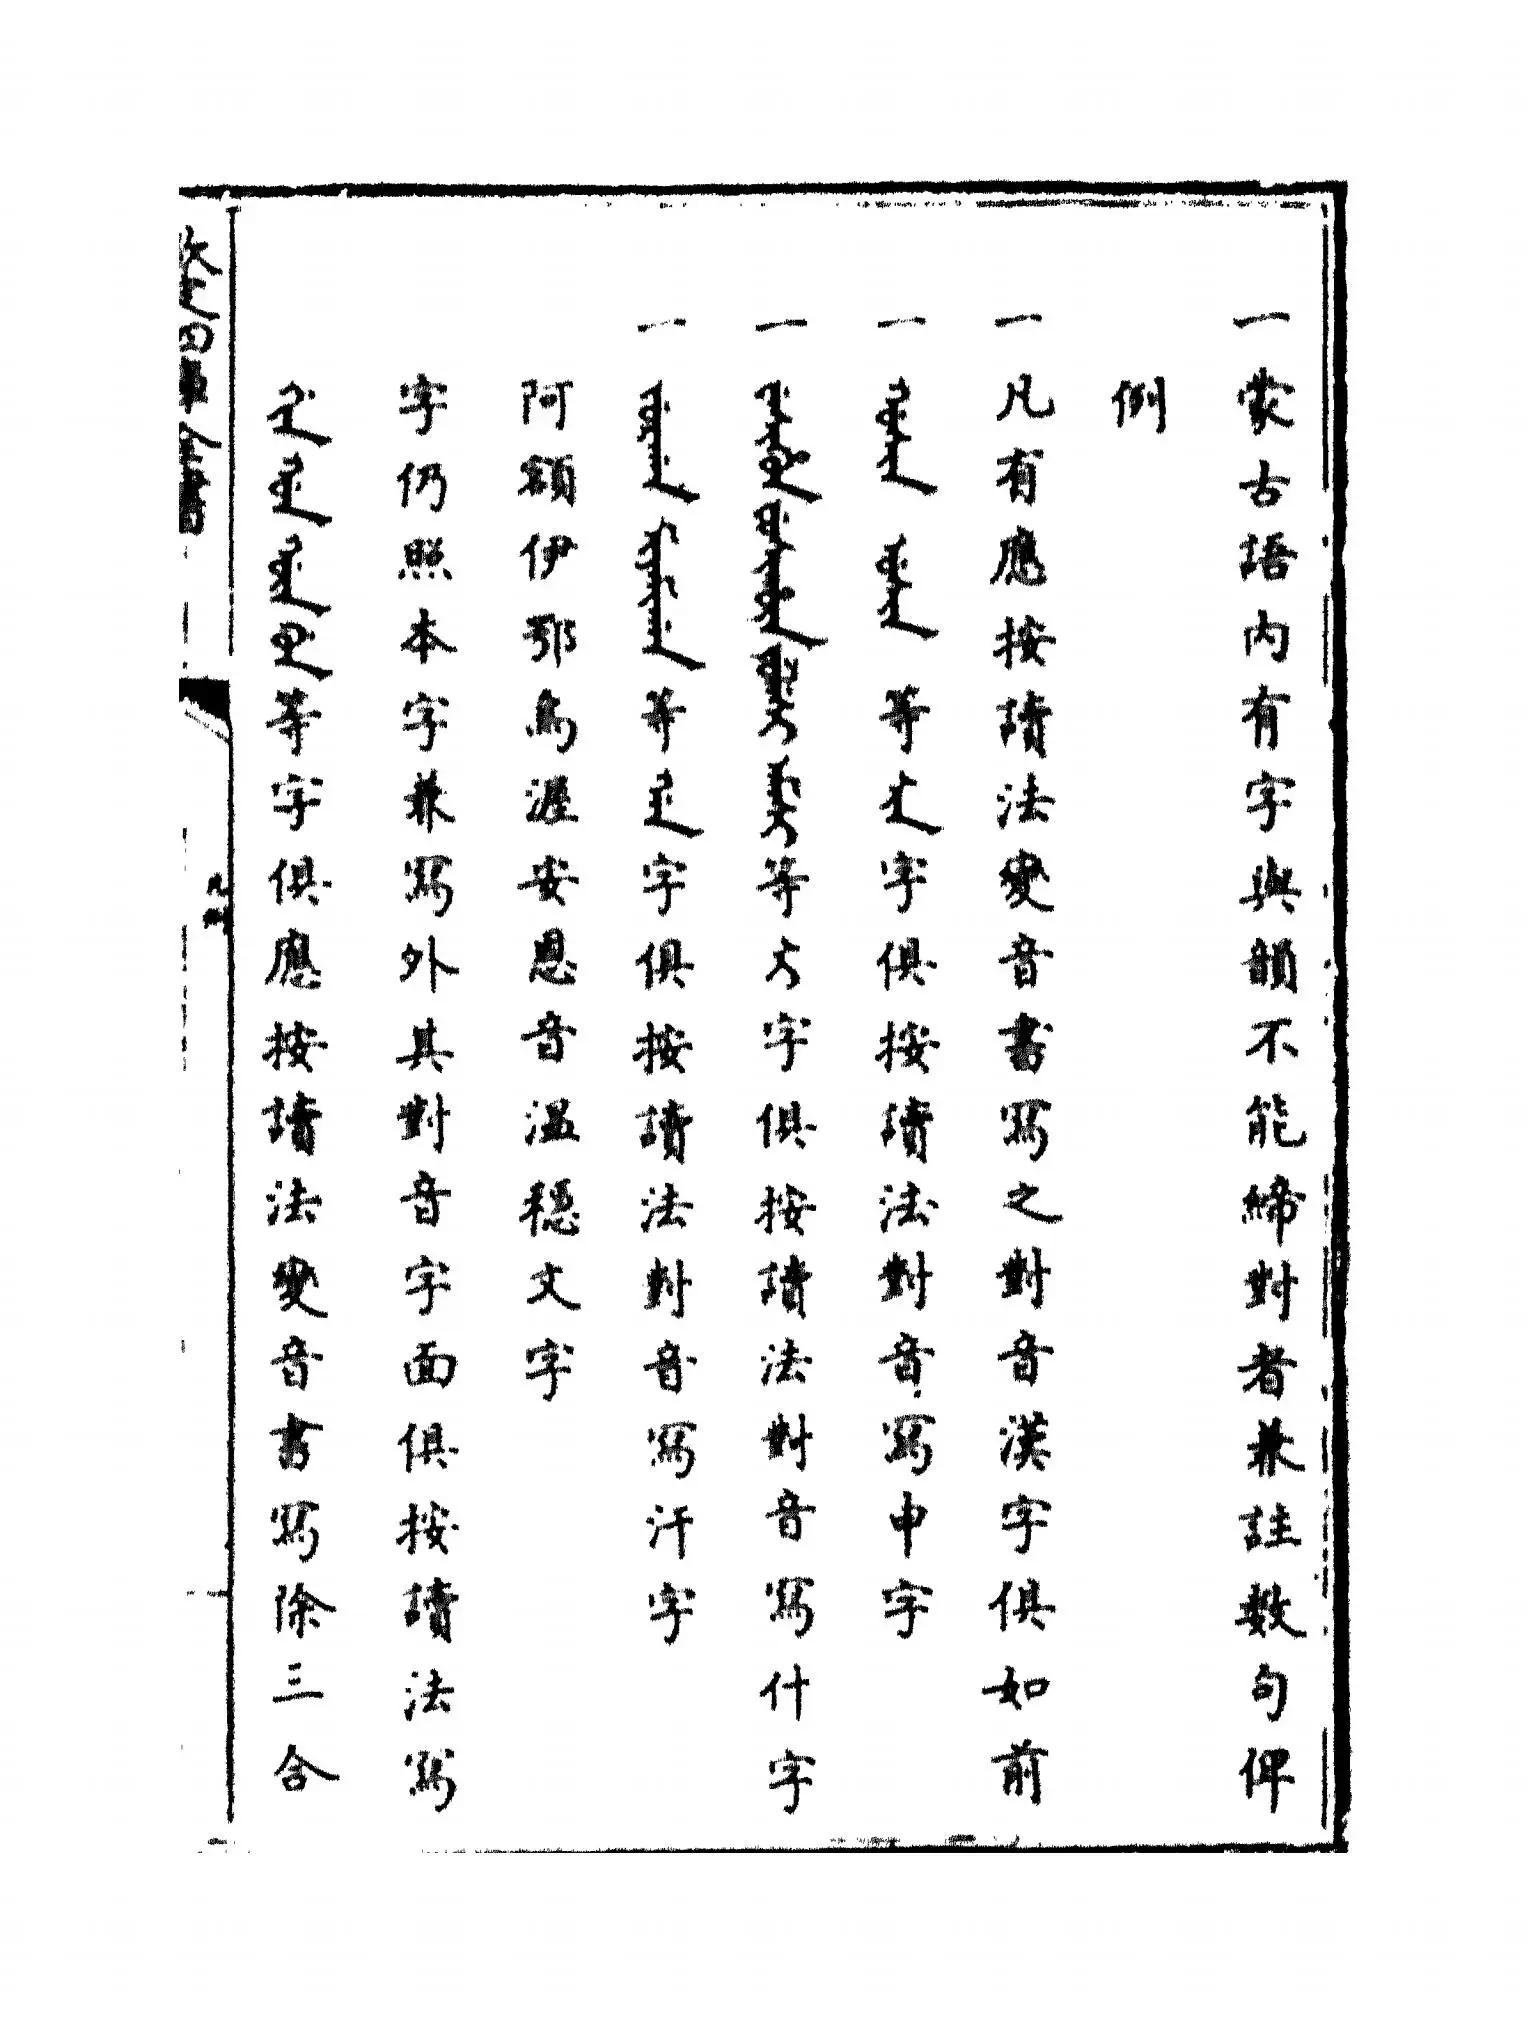 一蒙古語內有字與韻不能締對者兼註數句俾
例
一凡有應按讀法變音書寫之對音漢字俱如前
一 等 字俱按讀法對音寫申字
一 等 字俱按讀法對音寫什字
一 等 字俱按讀法對音寫汗字
阿額伊鄂烏渥安恩音溫穩文字
字仍照本字兼寫外其對音字面俱按讀法寫
等字俱應按讀法變音書寫除三合
欽定四庫全書
凡例